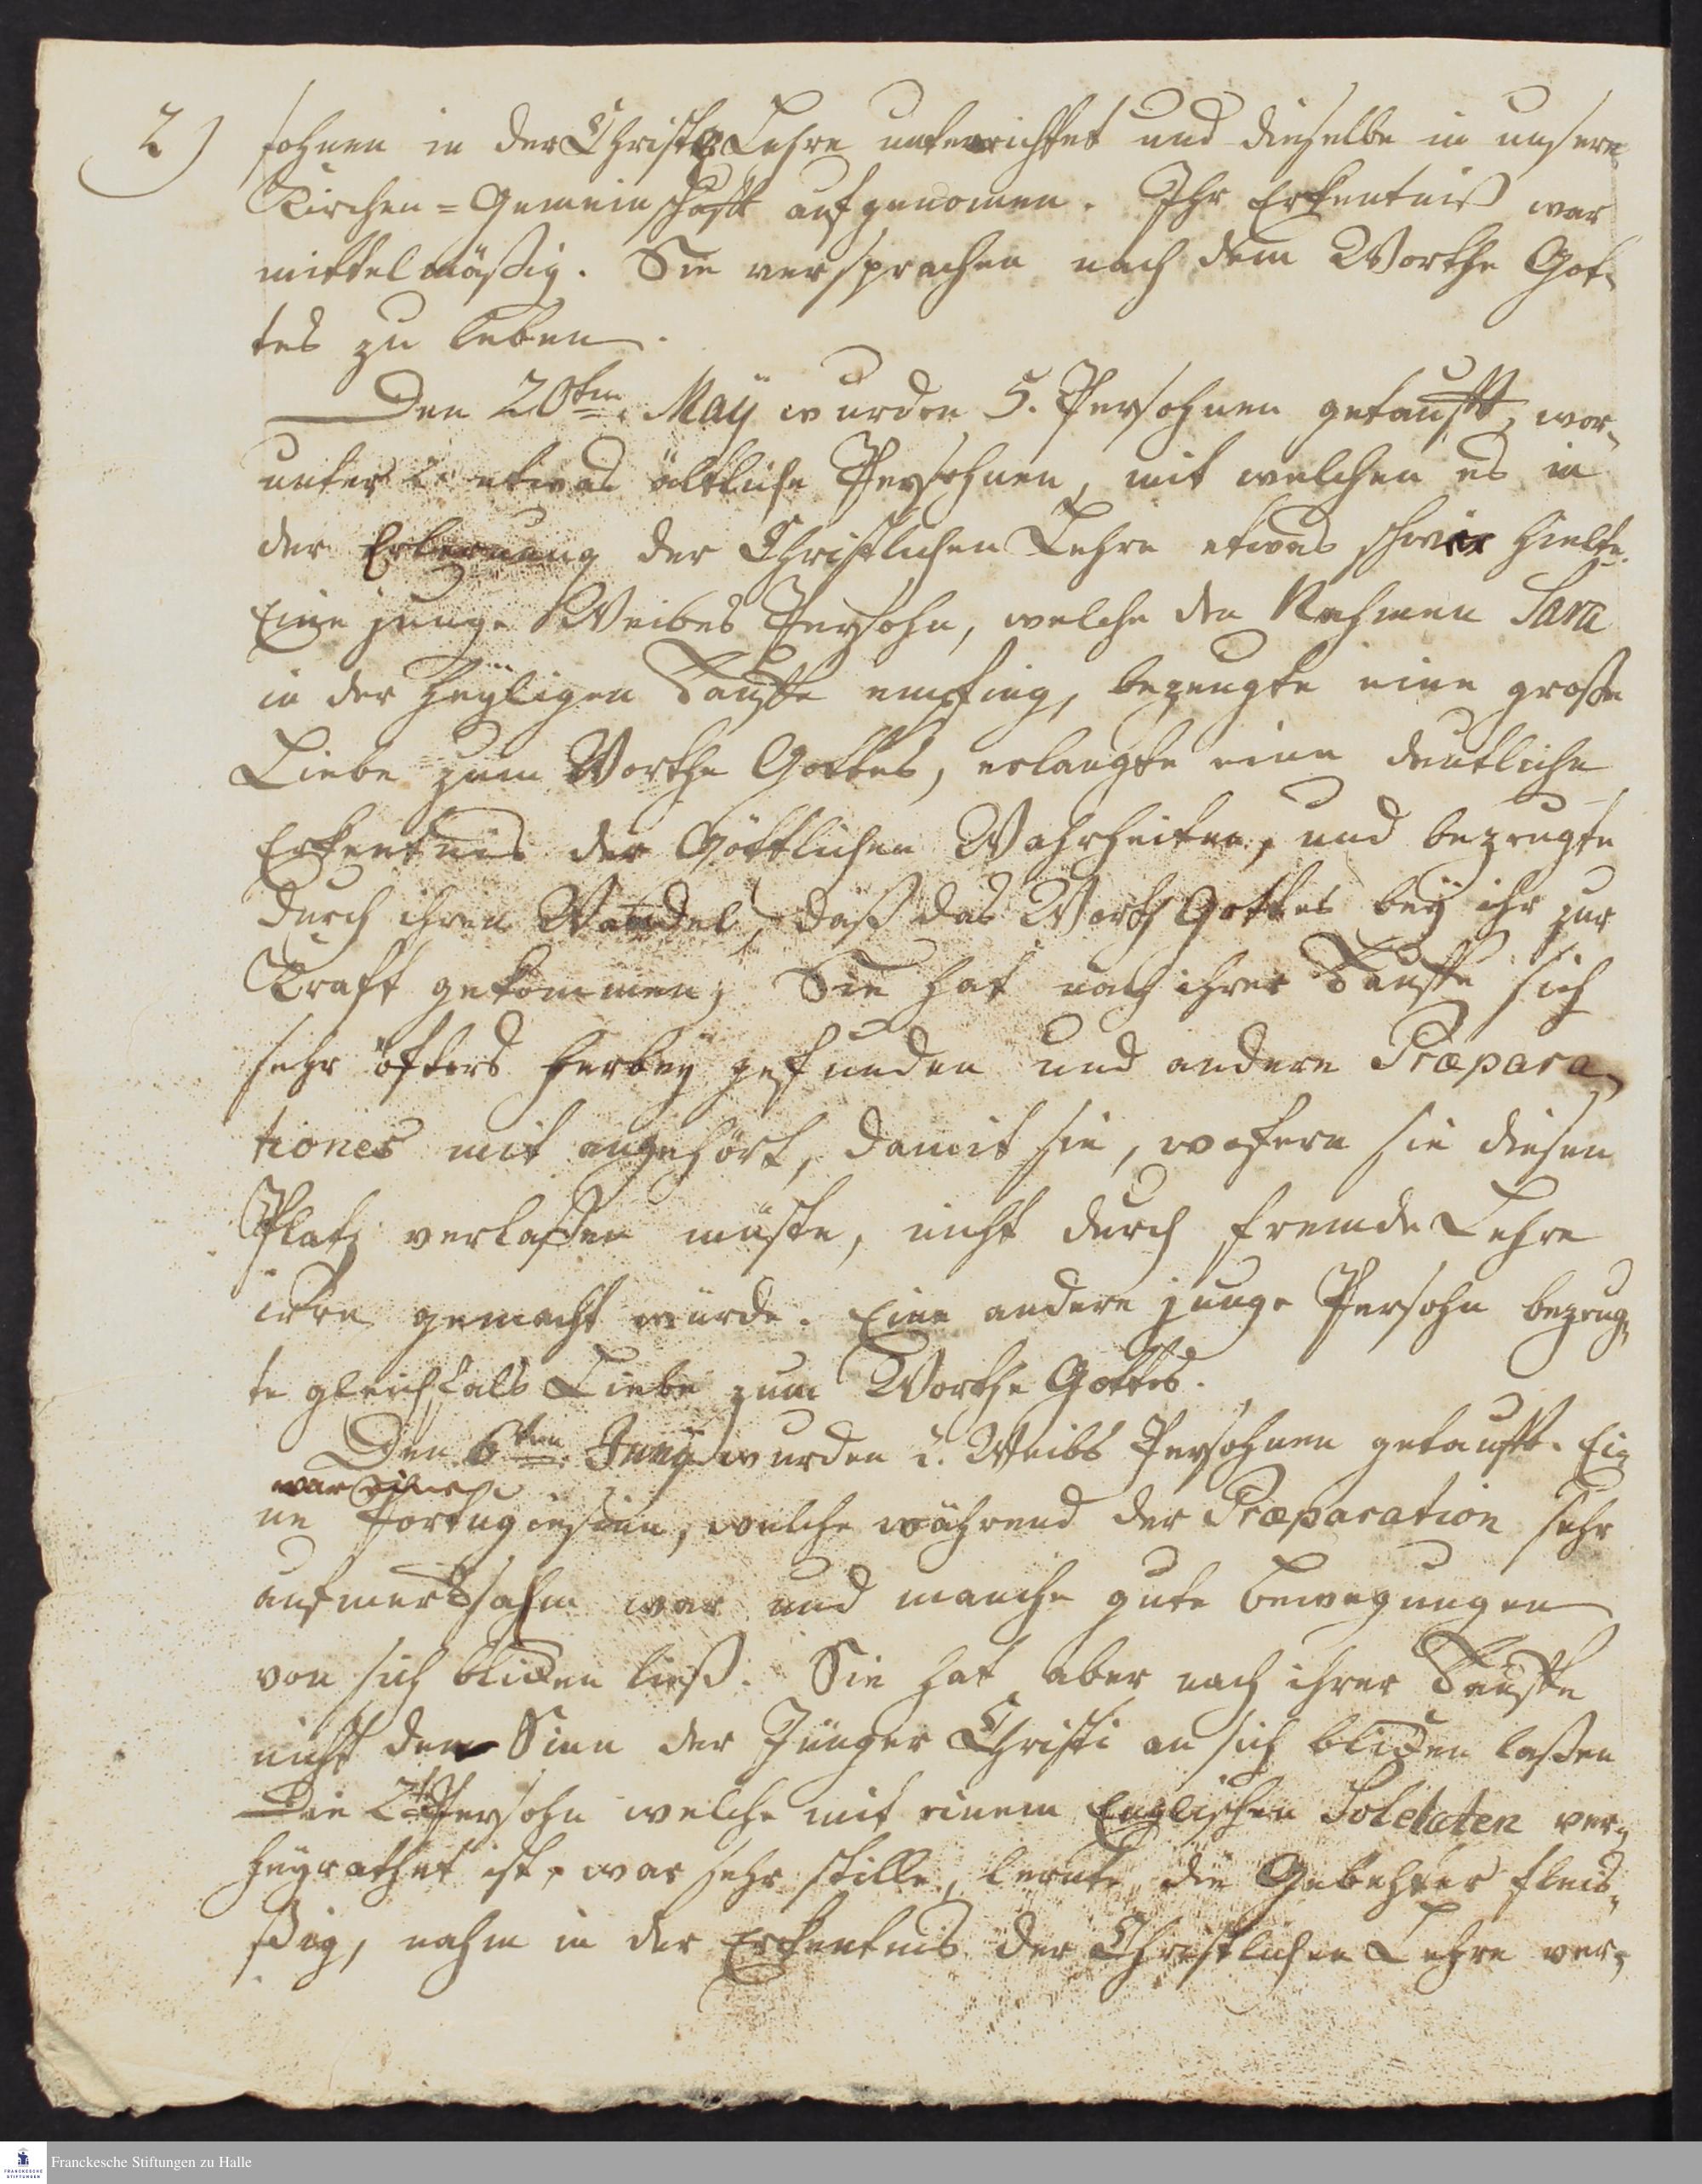 2) sohnen in der Christl. Lehre unterrichtet und dieselbe in unsere
Kirchen=Gemeinschafft aufgenomen. Ihr Erkentniß war
mittelmäßig. Sie versprachen nach dem Worthe Got-
tes zu leben.
Den 20ten. Maÿ wurden 5. Persohnen getaufft, wor-
unter 2. etwas ältliche Persohnen, mit welchen es in
der Erlernung der Christlichen Lehre etwas schwer hielte.
Eine junge Weibes Persohn, welche den Nahmen Sara
in der heyligen Tauffe empfing, bezeugte eine große
Liebe zum Worthe Gottes, erlangte eine deutliche
Erkentnis der Göttlichen Wahrheiten, und bezeugte
durch ihren Wandel, daß das Worth Gottes beÿ ihr zur
Krafft gekommen; Sie hat nach ihrer Tauffe sich
sehr öfters herbeÿ gefunden und andere Præpara-
tiones mit angehört, damit sie, wofern sie diesen
Platz verlaßen müste, nicht durch fremde Lehre
irre gemacht würde. Eine andere junge Persohn bezeug-
te gleichfals Liebe zum Worthe Gottes.
Den 6ten. Junÿ wurden 2. Weibs Persohnen getaufft. Ei-
war eine
ne Portugiesien, welche während der Præparation sehr
aufmerksahm war und manche gute Bewegungen
von sich blicken ließ. Sie hat aber nach ihrer Tauffe
nicht den Sinn der Jünger Christi an sich blicken laßen
Die 2te Persohn welche mit einem Englischen Soldaten ver-
heyrathet ist, war sehr stille, lernte die Gebehter fleis-
ßig, nahm in der Erkentnis der Christlichen Lehre ver-
Franckesche Stiftungen zu Halle